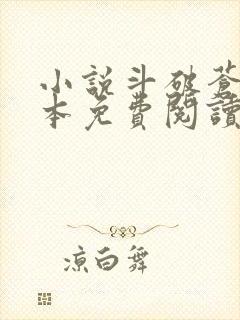 小說斗破蒼
本免費閱讀
涼白舞